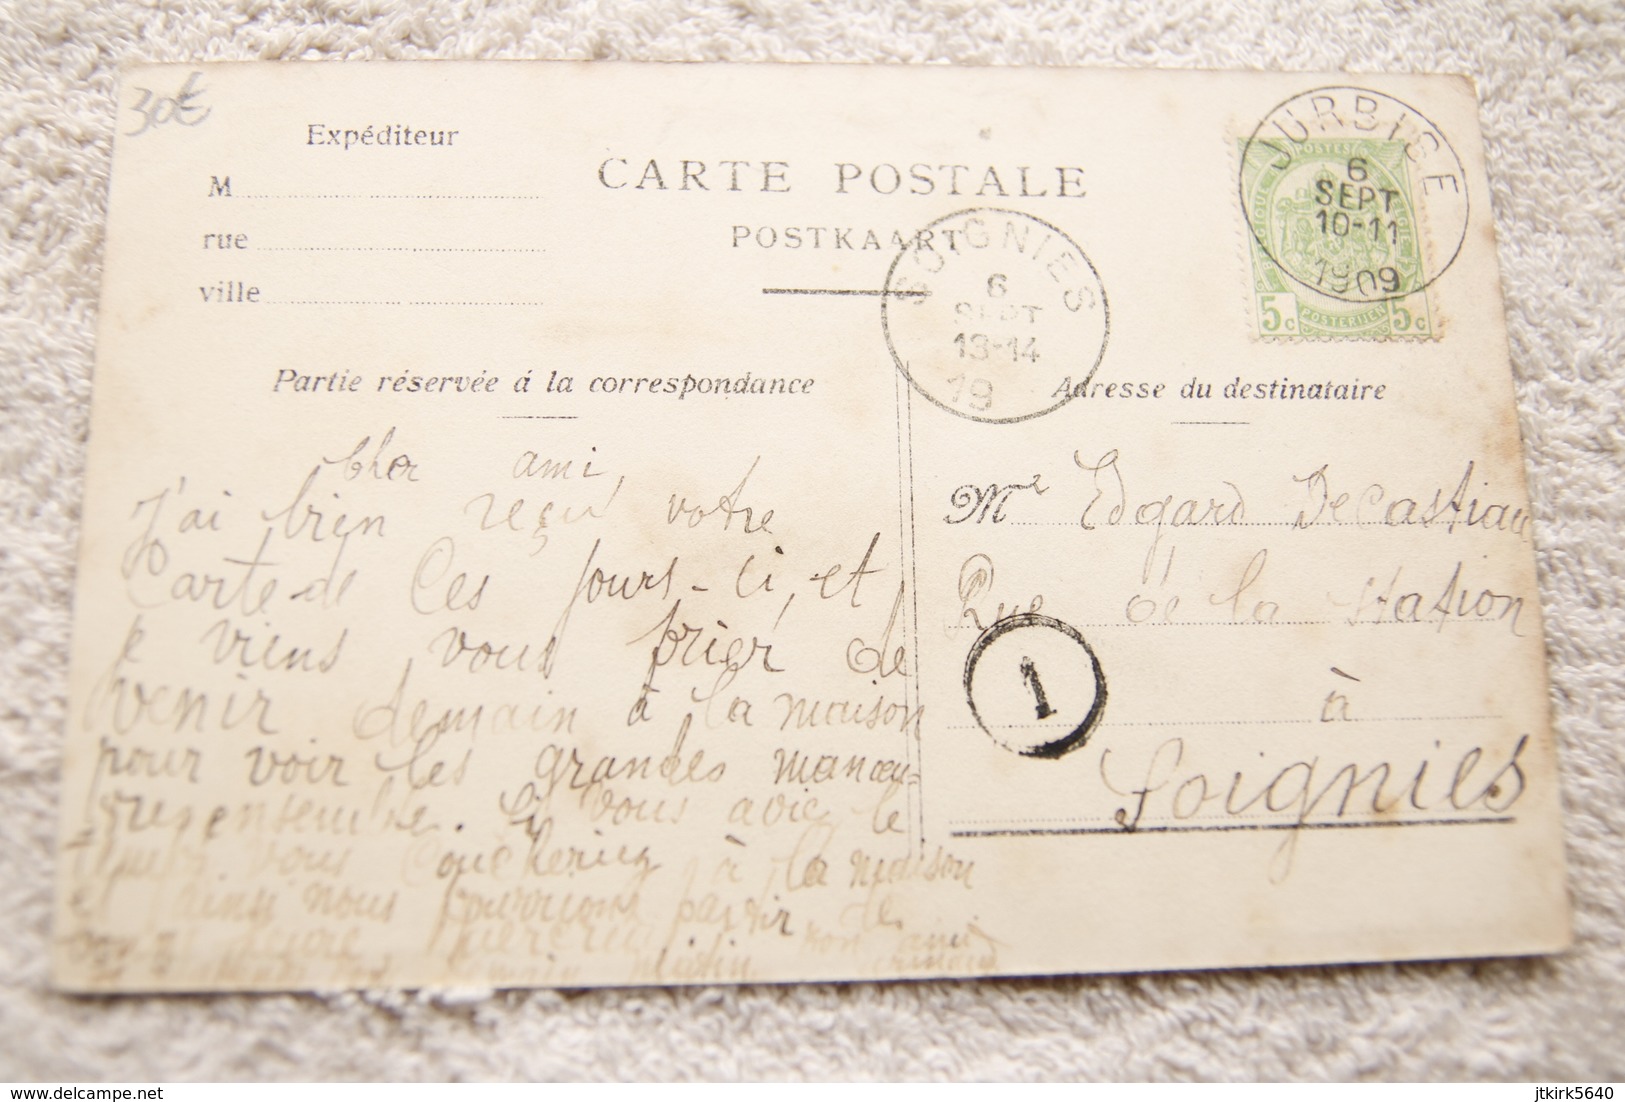 30€
Expéditeur
M
rue
ville
CARTE POSTALE
POSTKAART
JURBISE
6
SEPT
10-11
1909
POSTES
5c POSTERIJEN 5c
SOIGNIES
6
SEPT
13-14
19
Partie réservée á la correspondance
Adresse du destinataire
Cher ami,
J'ai bien reçu votre
Carte de Ces jours-ci, et
je viens vous prier de
venir demain à la maison
pour voir les grandes manoeu-
ensemble. Si vous avie le
vous à la maison
ainsi nous pourrions partir de
heure Mercredi
demain matin bon ami
Mr Edgard DeCastiau
Rue de la Station
à
Soignies
1
delcampe.net
jtkirk5640